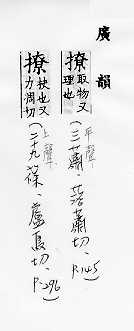 廣韻
撩取物又
理也
平聲
(三蕭、落蕭切、P.145)
撩扶也又
力凋切
上聲
(二十九篠、盧鳥切、P.296)